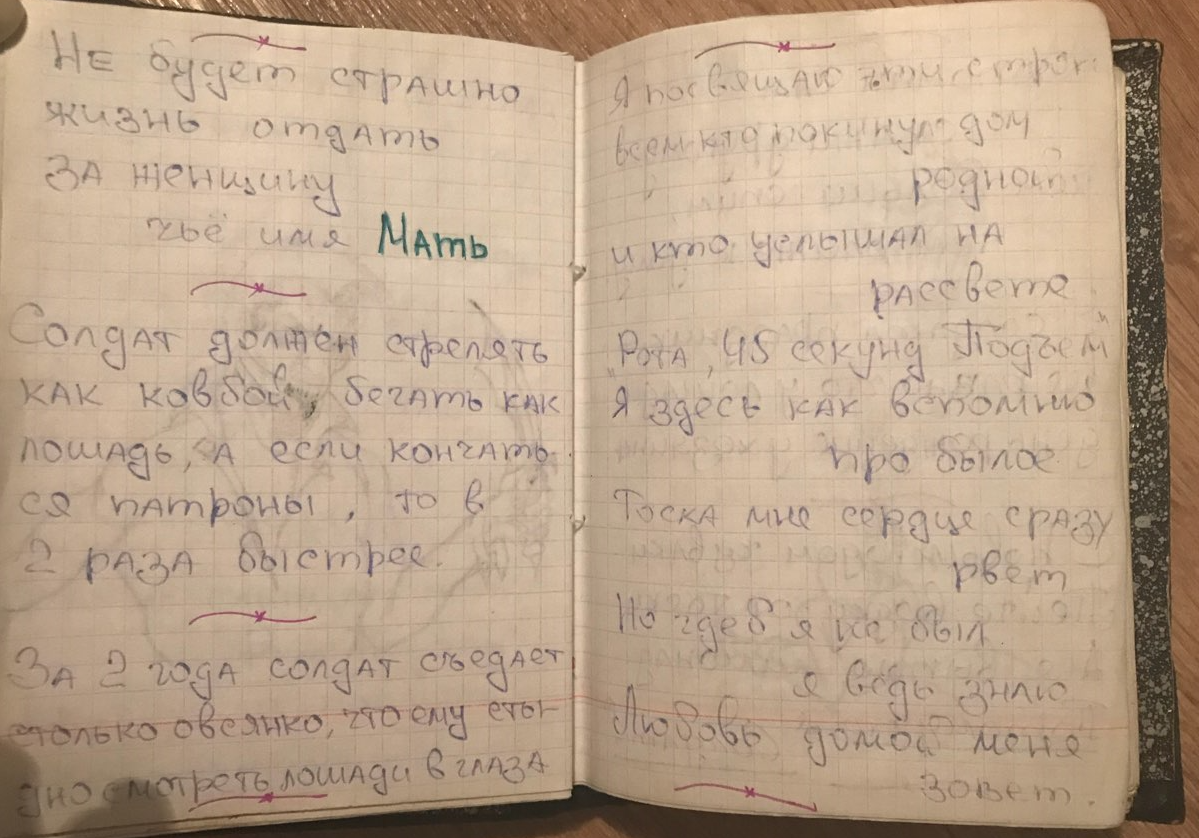 Не будет страшно
жизнь отдать
за женщину
чьё имя Мать
Солдат должен стрелять
как ковбой, бегать как
лошадь, а если кончать
ся патроны, то в
2 раза быстрее.
За 2 года солдат съедает
столько овсянко, что ему сты-
дно смотреть лошади в глаза
Я посвящаю эти строки
всем кто покинул дом
родной
и кто услышал на
рассвете
"Рота, 45 секунд Подъем"
Я здесь как вспомню
про былое
Тоска мне сердце сразу
рвет
Но где б я не был
я ведь знаю
Любовь домой меня
зовет.